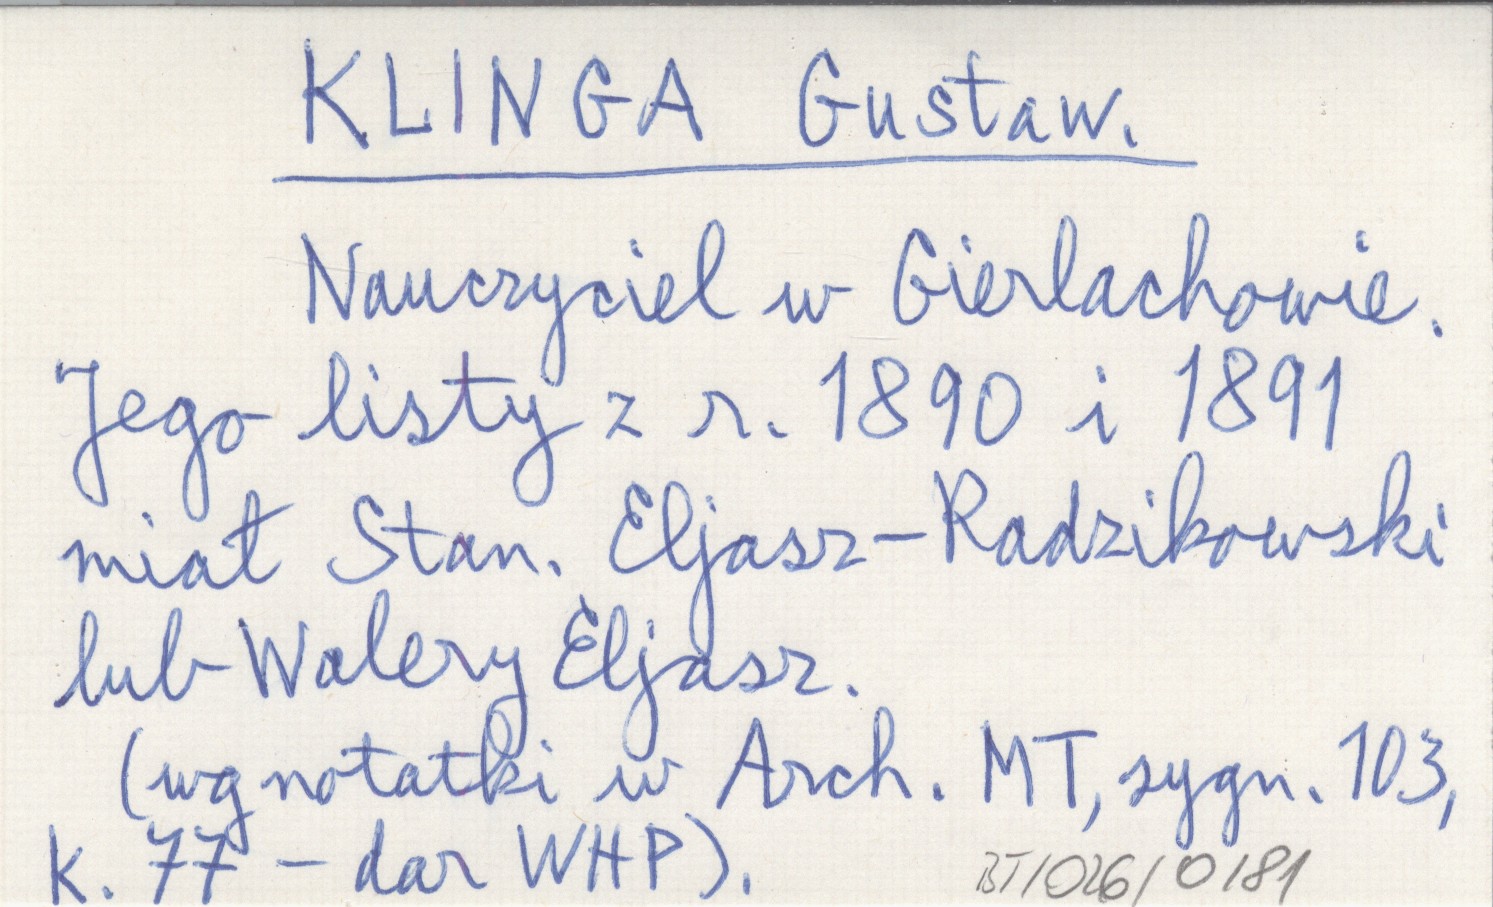 KLINGA Gustaw.
Nauczyciel w Gierlachowie.
Jego listy z r. 1890 i 1891
miał Stan. Eljasz-Radzikowski
lub Walery Eljasz.
(wg notatki w Arch. MT, sygn. 103,
k. 77 - dar WHP).
BT/026/0181